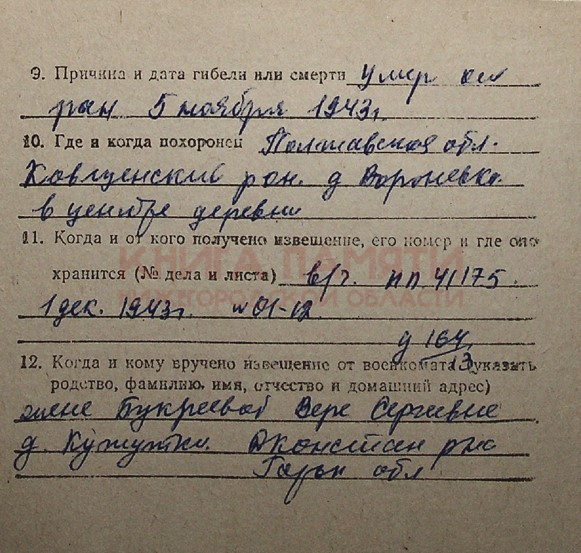 9. Причина и дата гибели или смерти умер от
ран 5 ноября 1943г.
10. Где и когда похоронен Полтавская обл.
рон. д Вороневка
в центре деревни
11. Когда и от кого получено извещение, его номер и где оно
хранится (№ дела и листа) в/г. пп 41175.
КНИГА ПАМЯТИ
НИЖЕГОРОДСКОЙ ОБЛАСТИ
1 дек. 1943г. №01-12
д 164/13
12. Когда и кому вручено извещение от военкомата (указать
родство, фамилию, имя, отчество и домашний адрес)
жене Букреевой Вере Сергеевне
д. Кужутки. Дконстан р-на
Горьк обл